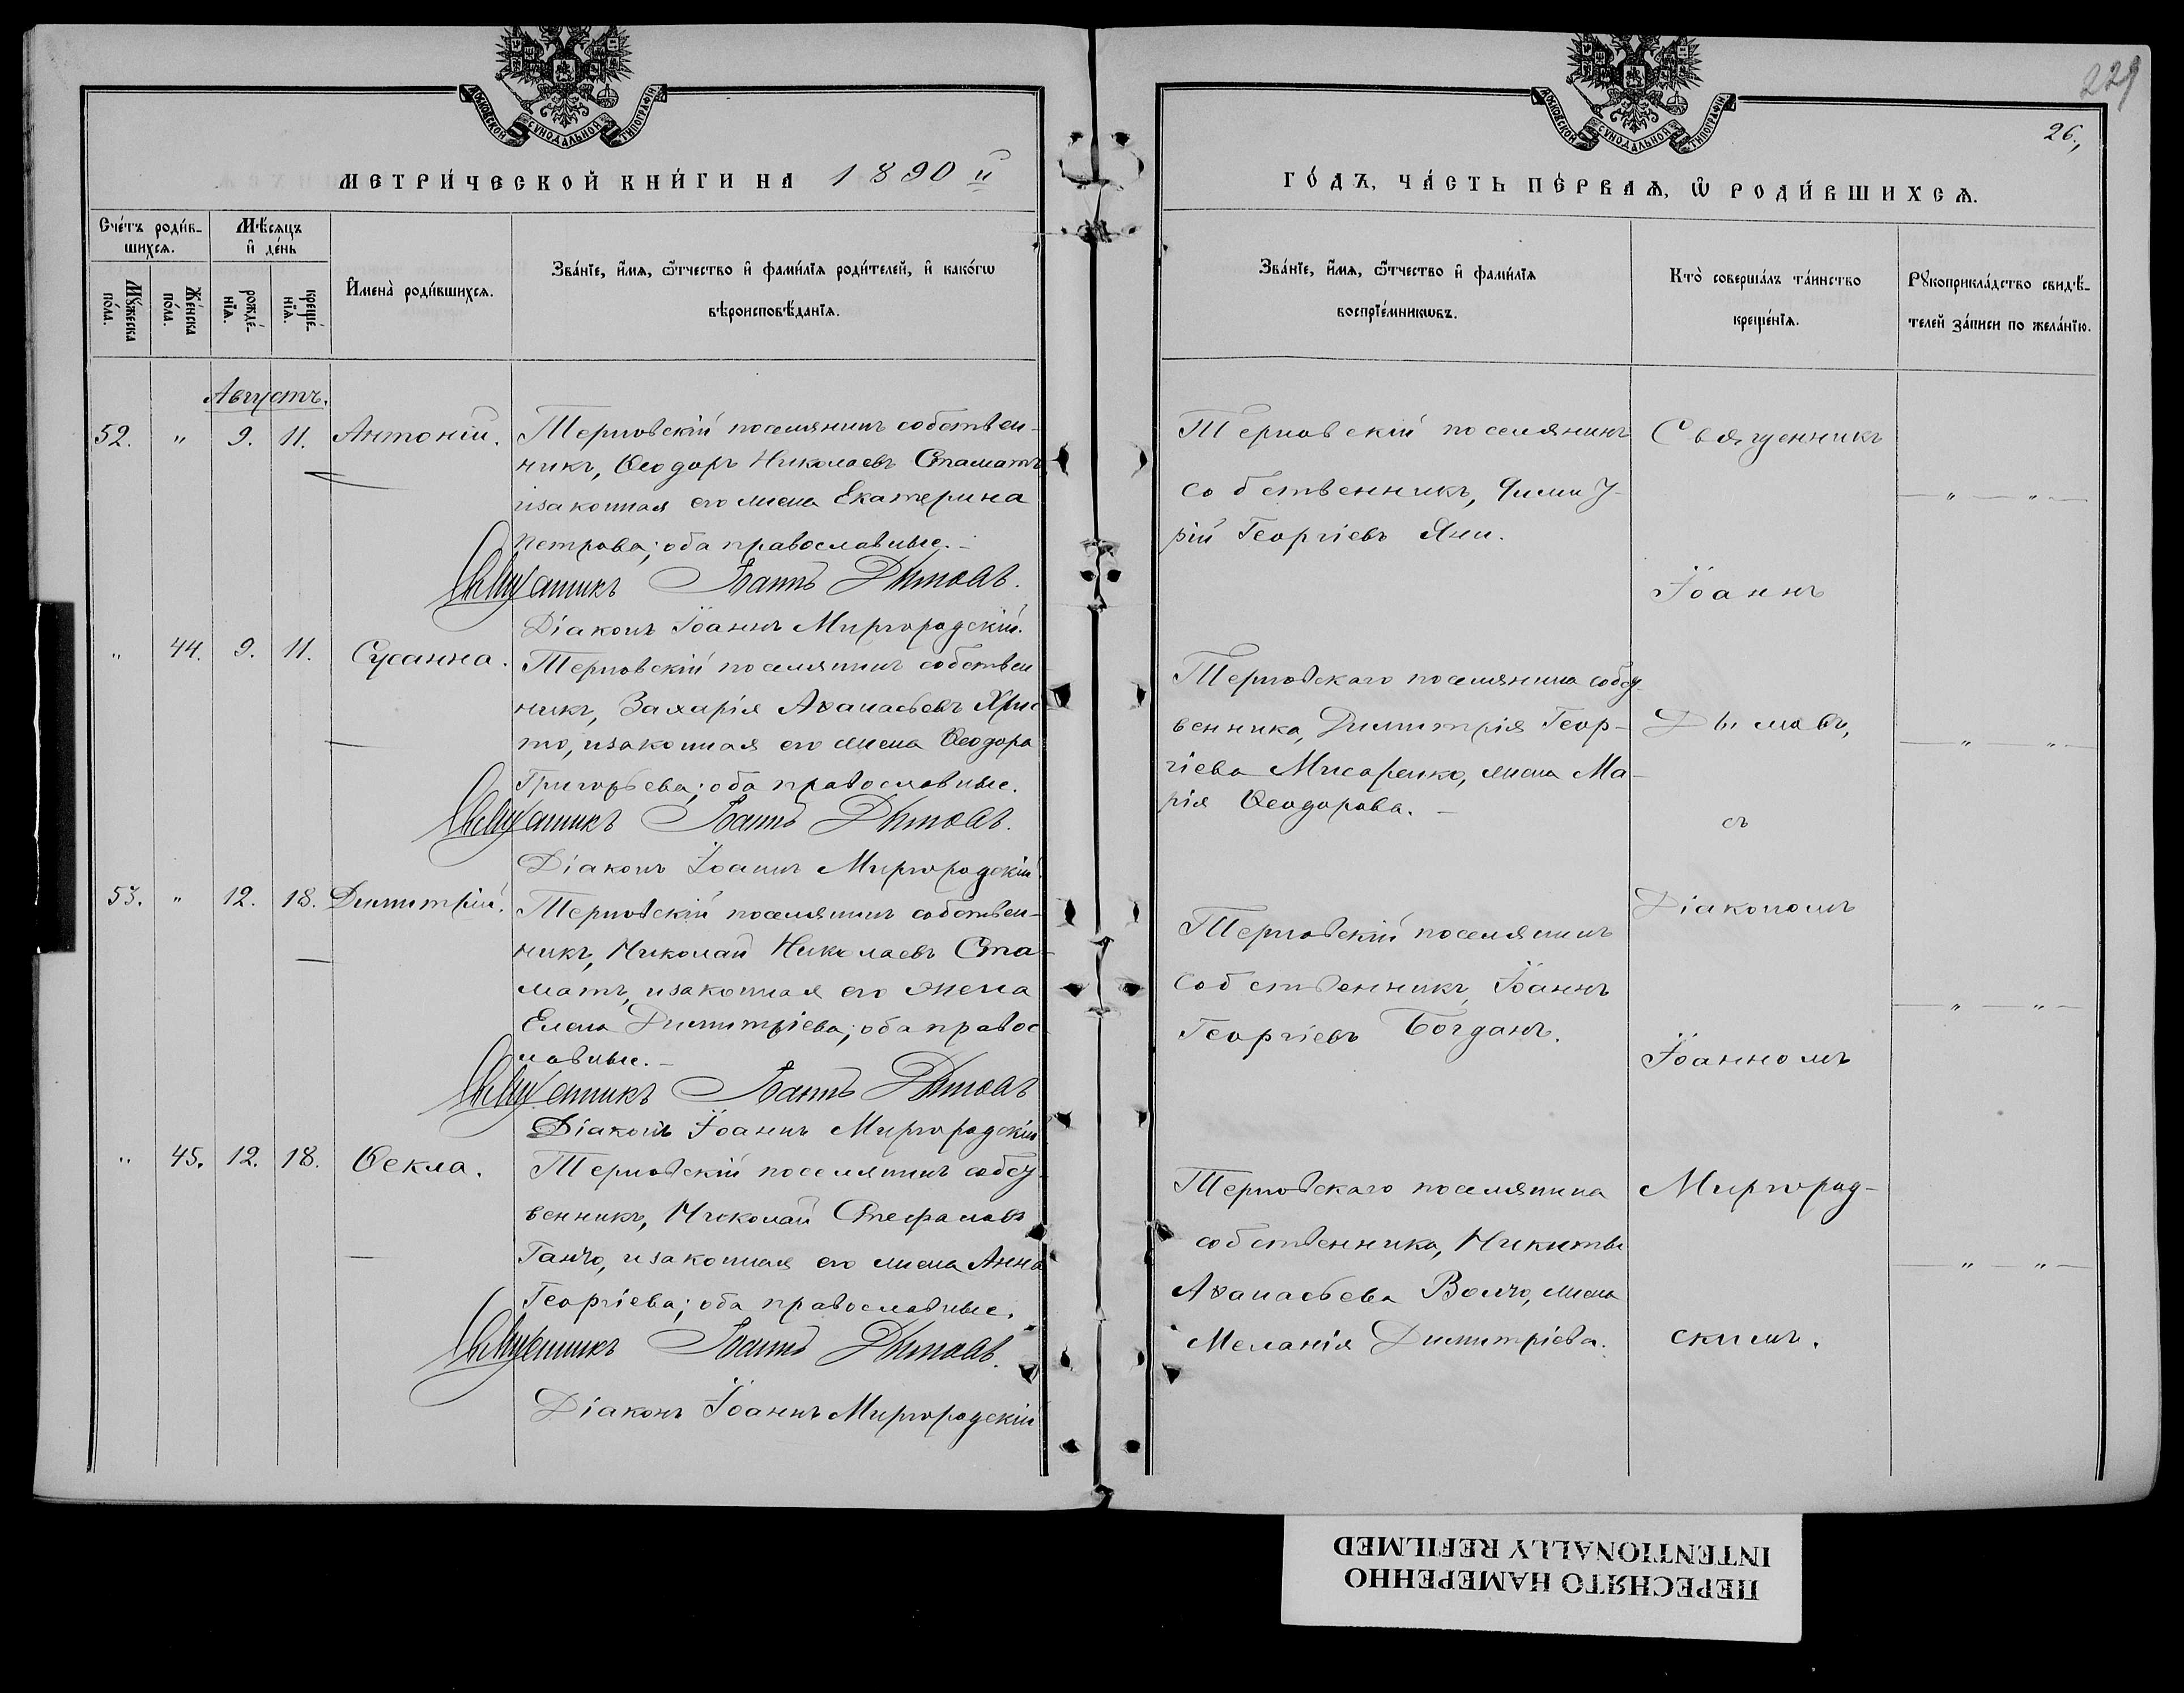 МОСКОВСКОЙ СУНОДАЛЬНОЙ ТИПОГРАФІИ
МЕТРИ́ЧЕСКОЙ КНИ́ГИ НА 1890 й
Сче́тъ роди́в-
шихся.
Мѣ́сяцъ
и҆ де́нь
Мꙋ́жеска
по́ла.
Же́нска
по́ла.
рожде́-
нїѧ.
креще́-
нїѧ.
И҆мена̀ роди́вшихсѧ.
Зва́нїе, и҆́мѧ, ѻ҆́тчество и҆ фами́лїѧ роди́телей, и҆ како́гѡ
вѣроисповѣ́данїѧ.
Августъ.
52. " 9. 11. Антоній.
Терновскій поселянинъ собствен-
никъ, Ѳеодоръ Николаевъ Стаматъ,
изаконная его жена Екатерина
Петрова; оба православные. -
Священникъ Іоаннъ Дымовъ.
Діаконъ Іоаннъ Миргородскій.
" 44. 9. 11. Сусанна.
Терновскій поселянинъ собствен
никъ, Захарія Аѳанасьевъ Хрис
то, изаконная его жена Ѳеодора
Григорьева; оба православные.
Священникъ Іоаннъ Дымовъ.
Діаконъ Іоаннъ Миргородскій.
53. " 12. 18. Димитрій.
Терновскій поселянинъ собствен-
никъ, Николай Николаевъ Ста-
матъ, изаконная его жена
Елена Димитріева; оба правос
лавные. -
Священникъ Іоаннъ Дымовъ
Діаконъ Іоаннъ Миргородскій
" 45. 12. 18. Ѳекла.
Терновскій поселянинъ собст
венникъ, Николай Стефановъ
Ганчо, изаконная его жена Анна
Георгіева; оба православные.
Священникъ Іоаннъ Дымовъ.
Діаконъ Іоаннъ Миргородскій
229
26.,
МОСКОВСКОЙ СУНОДАЛЬНОЙ ТИПОГРАФІИ
ГО́ДЪ, ЧА́СТЬ ПЕ́РВАѦ, Ѡ РОДИ́ВШИХСѦ.
Зва́нїе, и҆́мѧ, ѻ҆́тчество и҆ фами́лїѧ
воспрїе́мникѡвъ.
Кто̀ соверша́лъ та́инство
креще́нїѧ.
Рꙋкоприкла́дство свидѣ́-
телей за́писи по жела́нїю.
Терновскій поселянинъ
собственникъ,
рій Георгіевъ Яни.
Терновскаго поселянина собст-
венника, Димитрія Геор-
гіева Писаренко, жена Ма-
рія Ѳеодорова. -
Терновскій поселянинъ
собственникъ, Іоаннъ
Георгіевъ Богданъ.
Терновскаго поселянина
собственника, Никиты
Аѳанасьева Волчо, жена
Меланія Димитріева.
Священникъ
Іоаннъ
Дымовъ,
съ
Діакономъ
Іоанномъ
Миргород-
скимъ.
— " — " —
— " — " —
— " — " —
— " — " —
ПЕРЕСНЯТО НАМЕРЕННО
INTENTIONALLY REFILMED